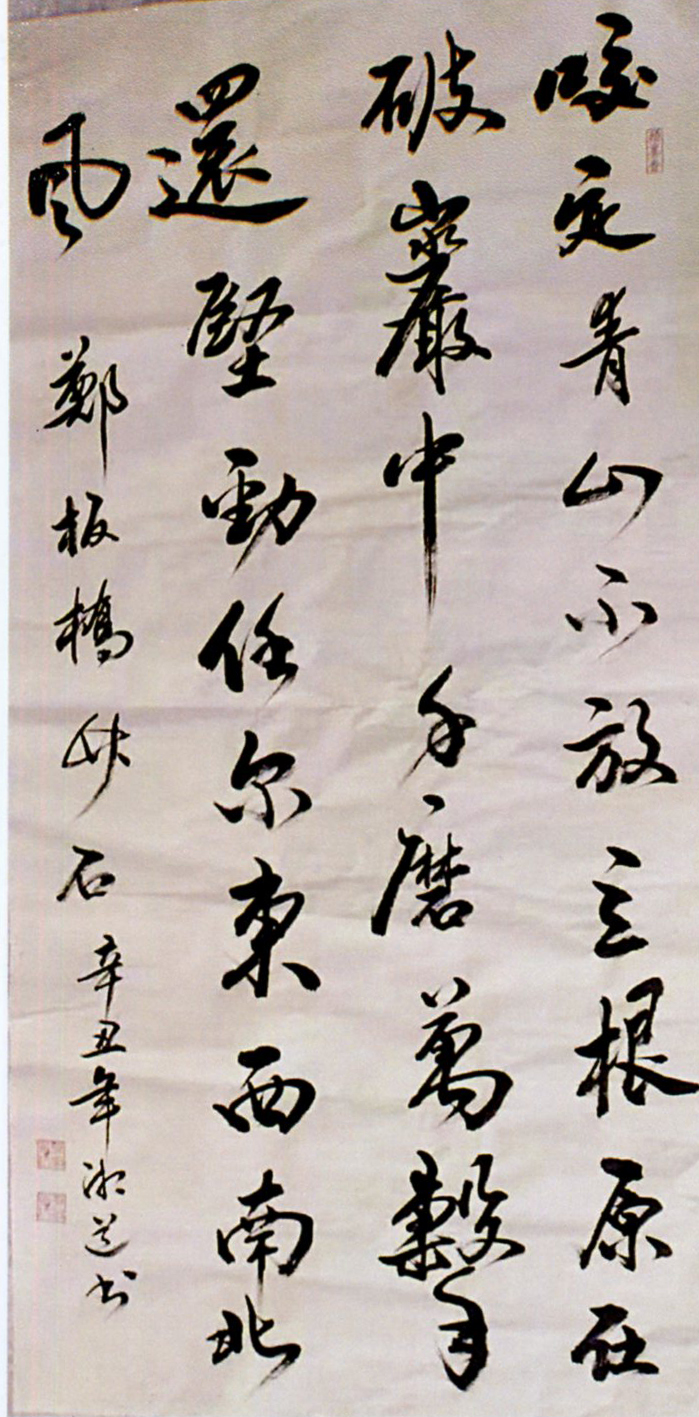 咬定青山不放立根原在
破巖中千磨萬擊
還堅勁任尔東西南北
風 鄭板橋 竹石 辛丑年 湘道书